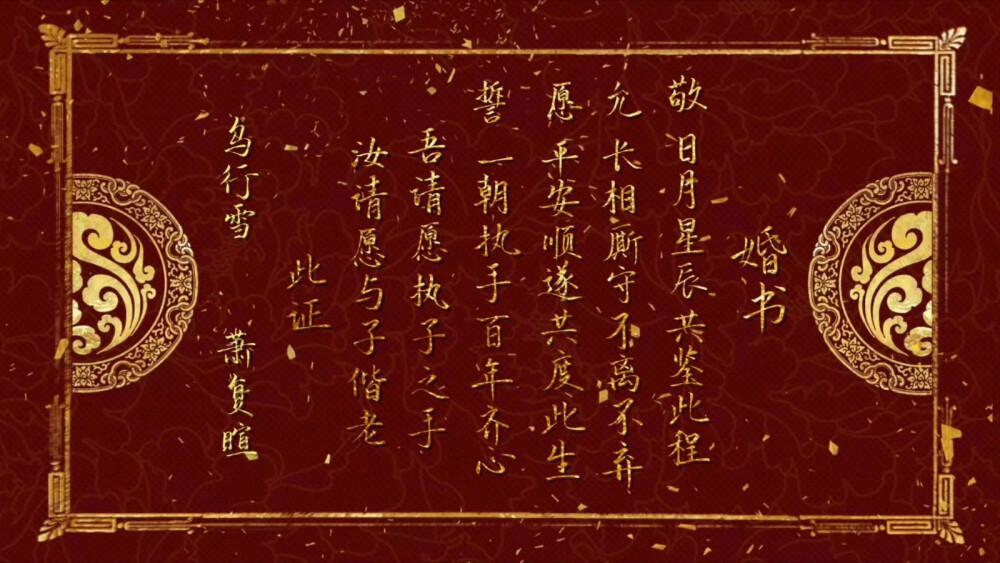 婚书
敬 日月星辰 共鉴此程
允 长相厮守 不离不弃
愿 平安顺遂 共度此生
誓 一朝执手 百年齐心
吾请愿执子之手
汝请愿与子偕老
此证
乌行雪 萧复暄